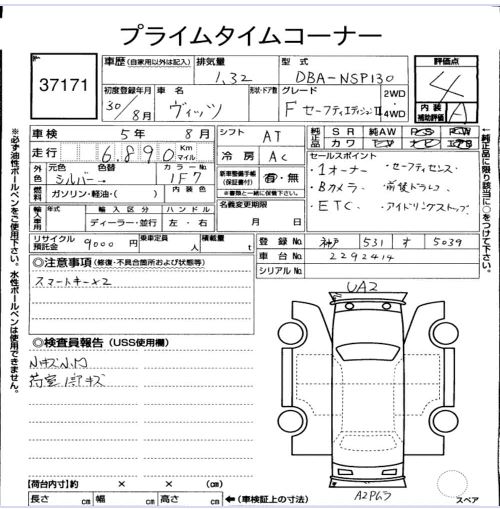 プライムタイムコーナー
37171
車歴 (自家用以外は記入) 排気量 1.32 型式 DBA-NSP130
評価点 4
初度登録年月 30/8月 車名 ヴィッツ 形状・ドア数 グレード F セーフティエディションⅡ 2WD・4WD
内装補助評価 A
車検 5年 8月 シフト AT
純正品 SR 純AW PS PW
純正品 カワ TV AB
走行 6.890 Km マイル 冷房 AC
セールスポイント
・1オーナー ・セーフティセンス
・Bカメラ ・前後ドラレコ
・ETC ・アイドリングストップ
外色 元色 シルバー 色替 カラーNo. 1F7
燃料 ガソリン・軽油・( ) 内装色
新車整備手帳 (保証書付) 有・無
輸入車用 年式 輸入区分 ディーラー・並行 ハンドル 左・右
名義変更期限 月 日
リサイクル預託金 9000円 乗車定員 人 積載量 t
登録No. 神戸 531 オ 5039
車台No. 2292414
シリアルNo.
◎注意事項 (修復・不具合箇所および状態等)
スマートキー×2
◎検査員報告 (USS使用欄)
小キズ小凹
荷室
キズ
UA2
A2Pレラ
スペア
【荷台内寸】約 × × (cm)
長さ cm 幅 cm 高さ cm ←(車検証上の寸法)
※必ず油性ボールペンをご使用下さい。水性ボールペンは使用できません。
(純正品に限り該当に○をつけて下さい)